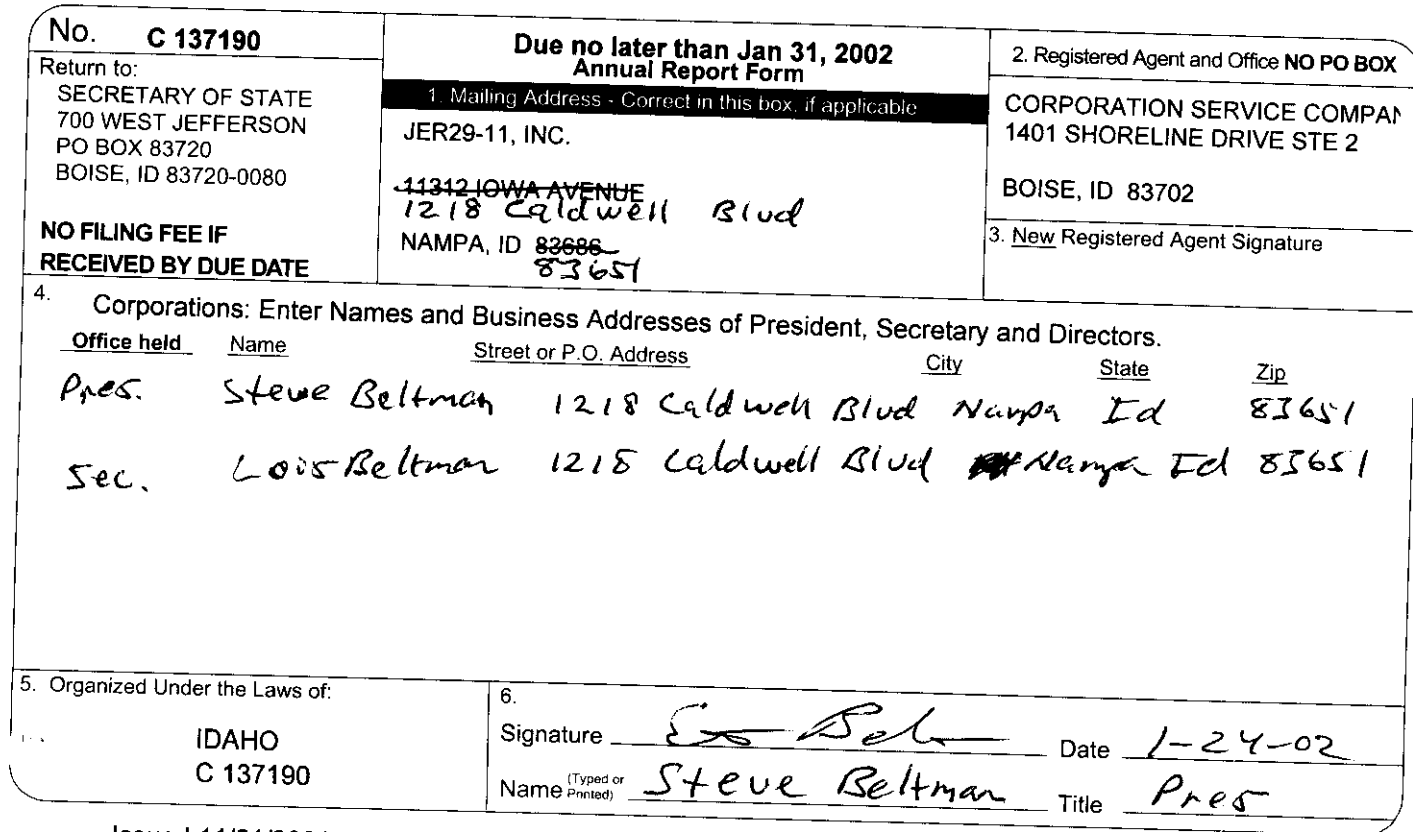 No. C 137190
Return to:
SECRETARY OF STATE
700 WEST JEFFERSON
PO BOX 83720
BOISE, ID 83720-0080
NO FILING FEE IF
RECEIVED BY DUE DATE
Due no later than Jan 31, 2002
Annual Report Form
1. Mailing Address - Correct in this box, if applicable
JER29-11, INC.
11312 IOWA AVENUE
1218 Caldwell Blvd
NAMPA, ID 83686
83651
2. Registered Agent and Office NO PO BOX
CORPORATION SERVICE COMPAN
1401 SHORELINE DRIVE STE 2
BOISE, ID 83702
3. New Registered Agent Signature
4. Corporations: Enter Names and Business Addresses of President, Secretary and Directors.
Office held Name Street or P.O. Address City State Zip
Pres. Steve Beltman 1218 Caldwell Blvd Nampa Id 83651
Sec. Lois Beltman 1218 Caldwell Blvd Nampa Id 83651
5. Organized Under the Laws of:
IDAHO
C 137190
6.
Signature Date 1-24-02
Name (Typed or Printed) Steve Beltman Title Pres